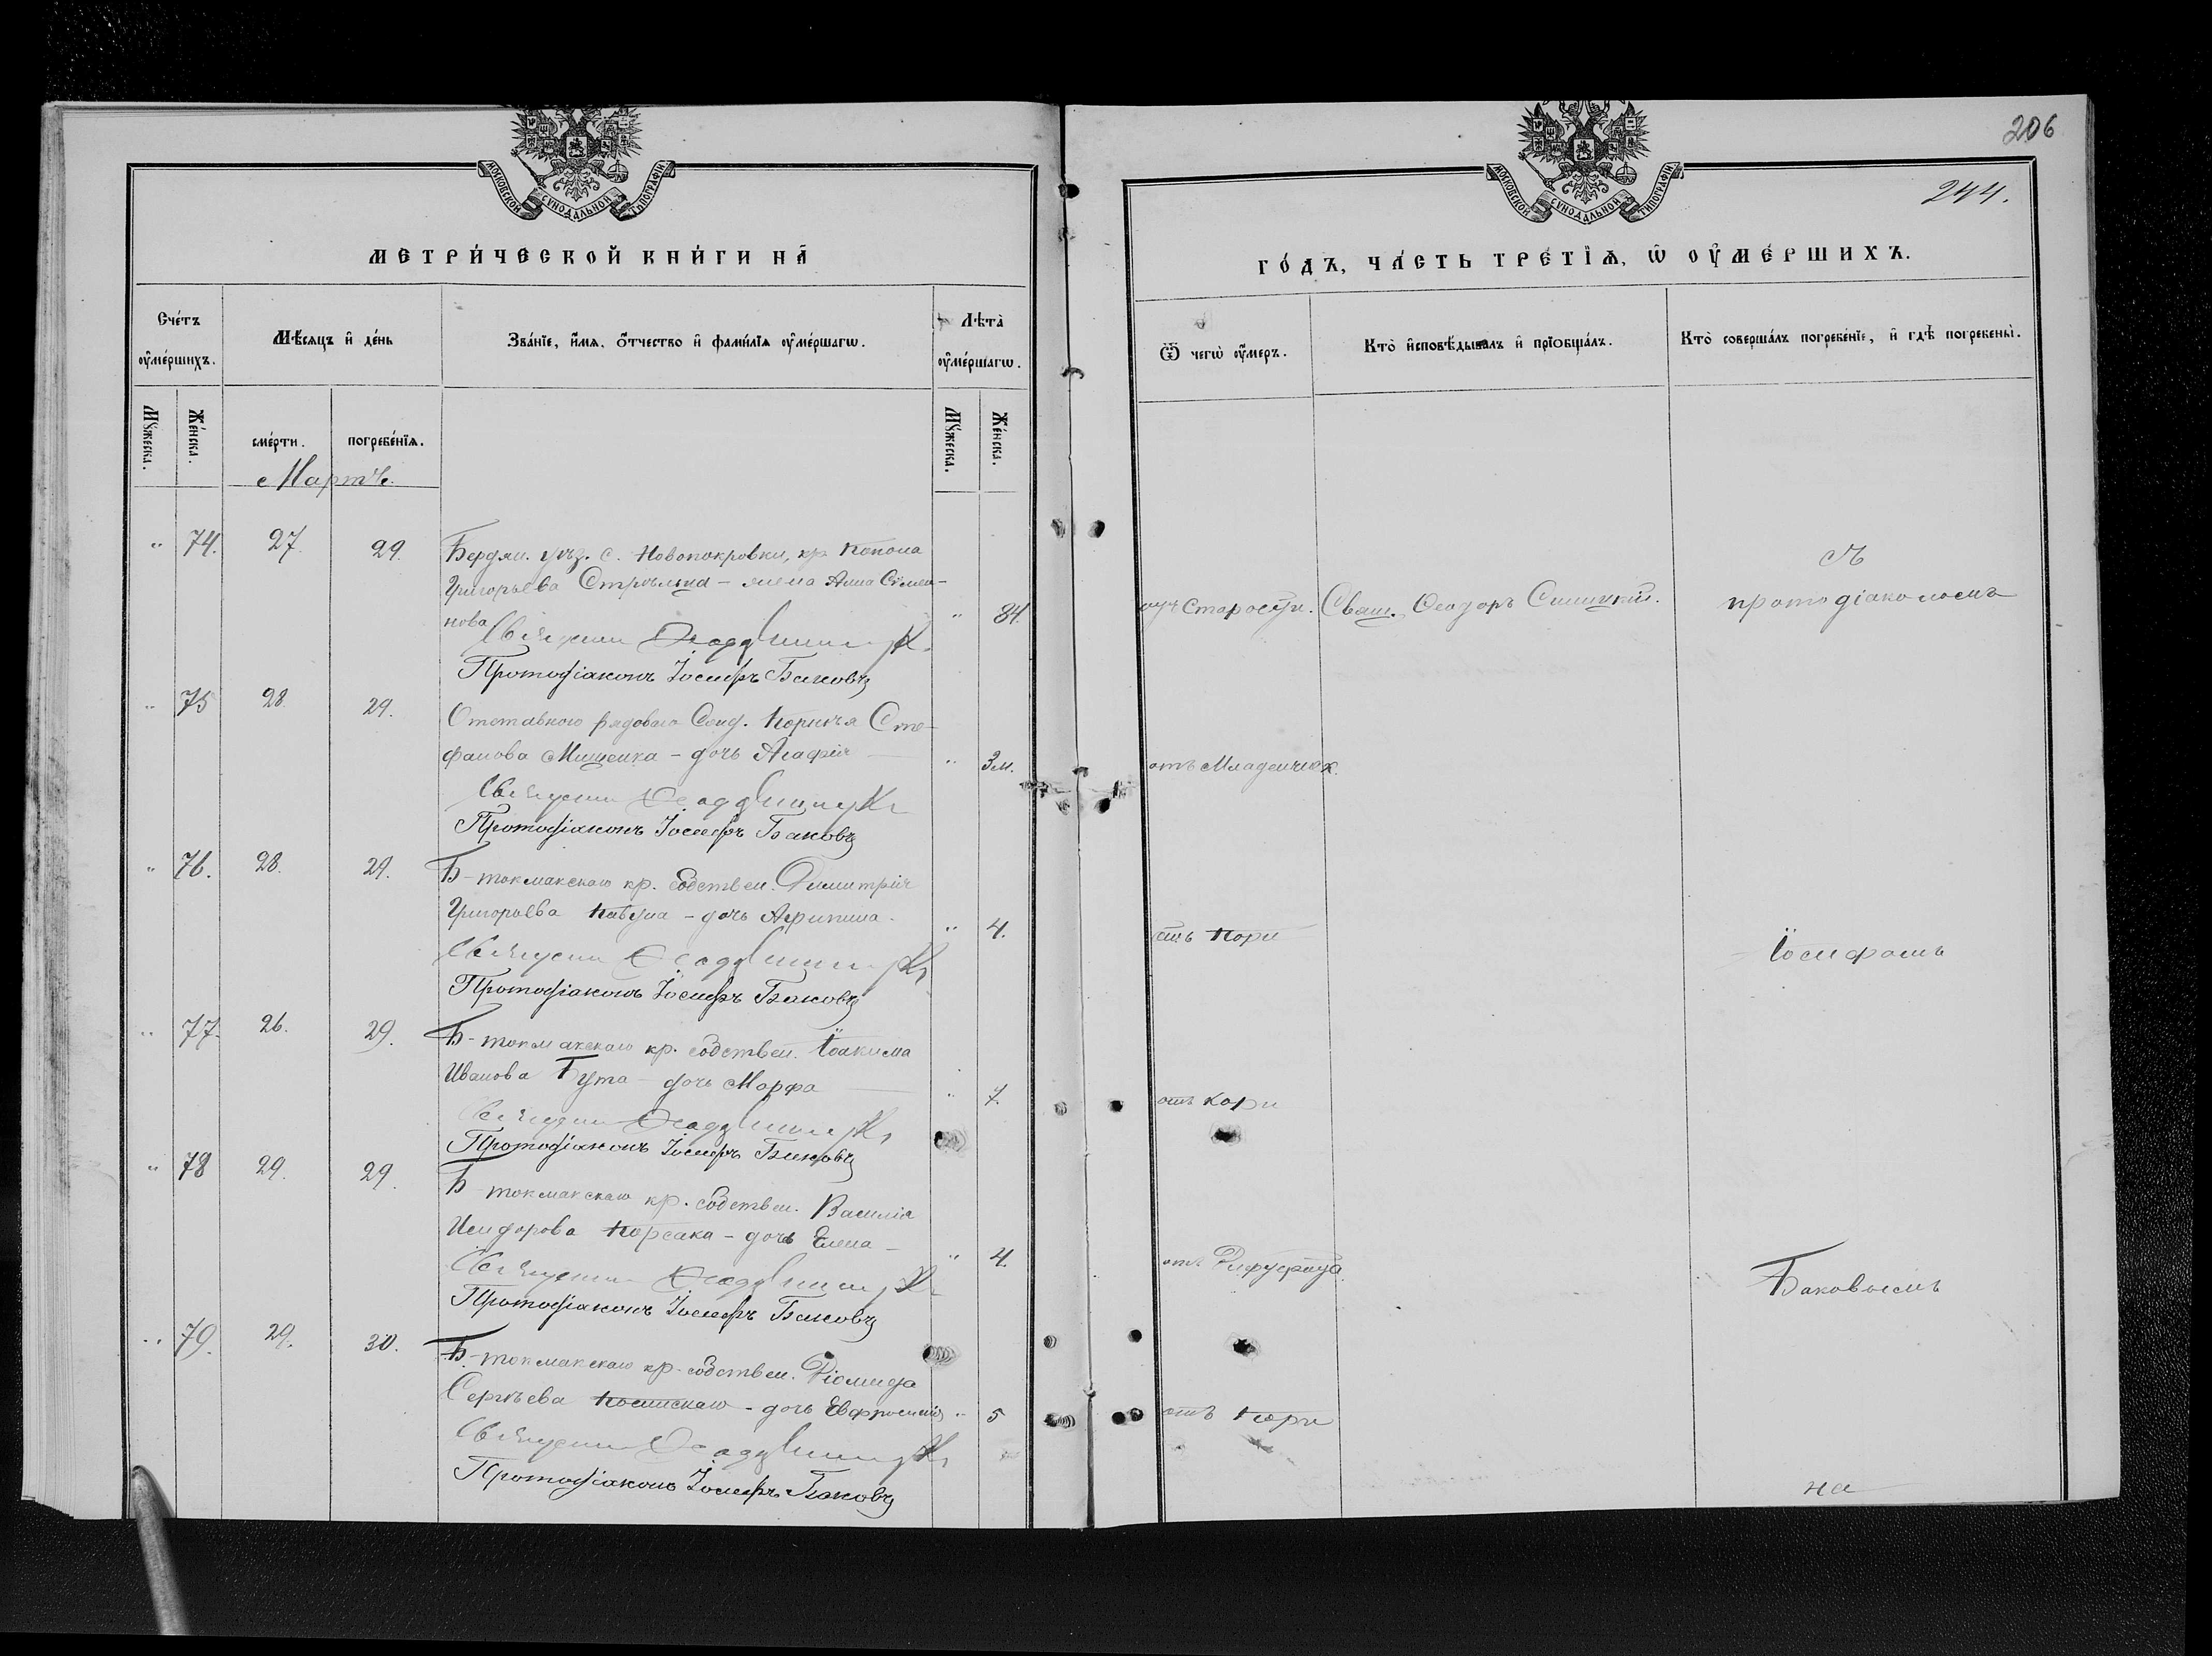 МОСКОВСКОЙ СУНОДАЛЬНОЙ ТИПОГРАФІИ
МЕТРИ́ЧЕСКОЙ КНИ́ГИ НА̀
Сче́тъ оу҆ме́ршихъ.
Мѣ́сяцъ и҆ де́нь
Зва́нїе, и҆́мя, ѻ҆́тчество и҆ фами́лїя оу҆ме́ршагѡ
Лѣта̀ оу҆ме́ршагѡ.
Му́жеска.
Же́нска.
сме́рти.
погребе́нїя.
Му́жеска.
Же́нска.
Мартъ.
" 74. 27. 29. Бердян. уѣз. с. Новопокровки, кр. Конона
Григорьева Стрѣльца - жена Анна Симео-
нова " 84.
Священникъ Ѳеодоръ
Протодіаконъ Іосифъ Баковъ
" 75 28. 29. Отставного рядового Сенд. Корнѣя Сте-
фанова Мищенка - дочь Агафія " 3 м.
Священникъ Ѳеодоръ
Протодіаконъ Іосифъ Баковъ
" 76. 28. 29. Б-токмакскаго кр. собствен. Димитрія
Григорьева - дочь Агрипина. " 4.
Священникъ Ѳеодоръ
Протодіаконъ Іосифъ Баковъ
" 77. 26. 29. Б-токмакскаго кр. собствен. Іоакима
Иванова Бута - дочь Марфа " 7.
Священникъ Ѳеодоръ
Протодіаконъ Іосифъ Баковъ
" 78 29. 29. Б-токмакскаго кр. собствен. Василія
Исидорова Корсака - дочь Елена - " 4.
Священникъ Ѳеодоръ
Протодіаконъ Іосифъ Баковъ
" 79. 29. 30. Б-токмакскаго кр. собствен. Діомида
Сергѣева - дочь Евфросинія " 5
Священникъ Ѳеодоръ
Протодіаконъ Іосифъ Баковъ
206
МОСКОВСКОЙ СУНОДАЛЬНОЙ ТИПОГРАФІИ
244.
ГО́ДЪ, ЧА́СТЬ ТРЕ́ТЇѦ, Ѡ҆ ОУ҆МЕ́РШИХЪ.
Ѿ чегѡ̀ оу҆́меръ.
Кто̀ и҆сповѣ́дывалъ и҆ прїобща́лъ.
Кто̀ соверша́лъ погребе́нїе, и҆ гдѣ̀ погребены̀.
отъ Старости. Свящ. Ѳеодоръ
съ
протодіакономъ
отъ Младенческ.
отъ Кори
Іосифомъ
отъ Кори
отъ Дифтерита
Баковымъ
отъ Кори
на